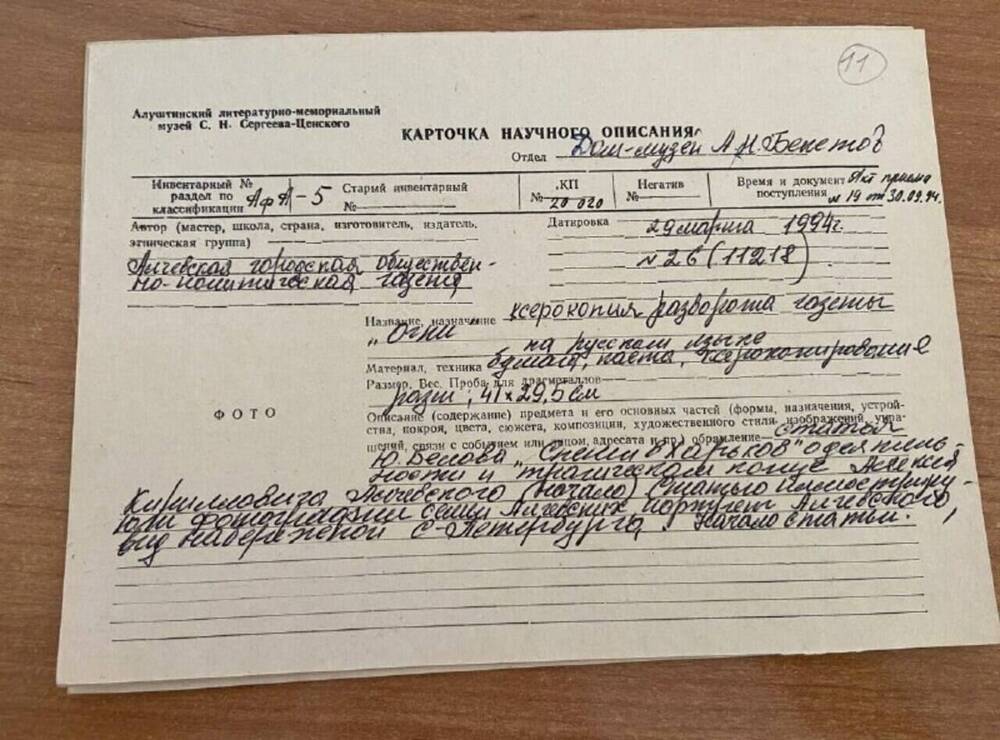 11
Алуштинский литературно-мемориальный
музей С. Н. Сергеева-Ценского
КАРТОЧКА НАУЧНОГО ОПИСАНИЯ
Отдел Дом-музей А.Н. Бекетов
Инвентарный №
раздел по
классификации АфА-5
Старый инвентарный
№
КП
№ 20 020
Негатив
№
Время и документ Акт приема
поступления № 19 от 30.09.94.
Автор (мастер, школа, страна, изготовитель, издатель,
этническая группа)
Алчевская городская обществен-
но-политическая газета
Датировка 29 марта 1994г.
№ 26 (11218)
Название, назначение ксерокопия разворота газеты
„Огни" на русском языке
Материал, техника бумага, паста, ксерокопирование
Размер. Вес. Проба для драгметаллов
разм; 41×29,5см
ФОТО
Описание (содержание) предмета и его основных частей (формы, назначения, устрой-
ства, покроя, цвета, сюжета, композиции, художественного стиля, изображений, укра-
шений, связи с событием или лицом, адресата и пр.) обрамление статья
Ю. Белова „Спеши в Харьков" о деятель-
ности и трагическом конце Алексея
Кирилловича Алчевского (начало) Статью иллюстриру-
ют фотографии семьи Алчевских, портрет Алчевского,
вид набережной С-Петербурга. Начало статьи.